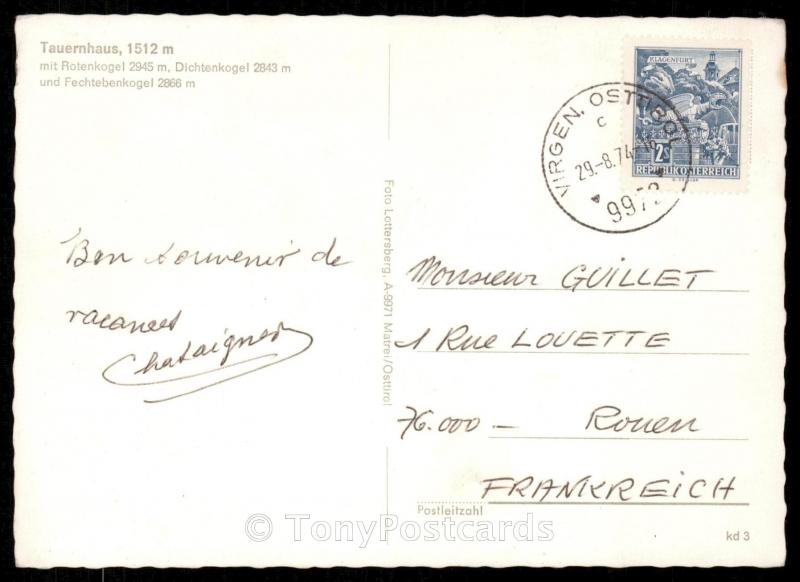 Tauernhaus, 1512 m
mit Rotenkogel 2945 m, Dichtenkogel 2843 m
und Fechtebenkogel 2866 m
KLAGENFURT
2S
REPUBLIK ÖSTERREICH
VIRGEN, OSTTIROL
c
29.-8.74-16
9972
Bon souvenir de
vacances
Chataigner
Foto Lottersberg, A-9971 Matrei/Osttirol
Monsieur GUILLET
1 Rue LOUETTE
76.000 — Rouen
FRANKREICH
Postleitzahl
© TonyPostcards
kd 3